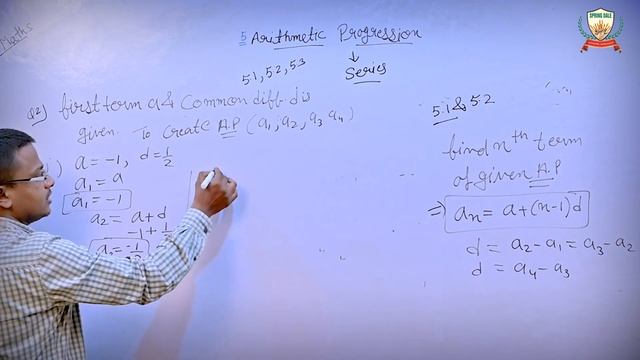 Maths
5 Arithmetic Progression
51, 52, 53
Series
Q2) first term a & Common diff. d is
given. To Create A.P (a₁, a₂, a₃ a₄)
i) a = -1, d = 1/2
a₁ = a
a₁ = -1
a₂ = a + d
-1 + 1
5.1 & 5.2
find nth term
of given A.P
⇒ aₙ = a + (n-1) d
d = a₂ - a₁ = a₃ - a₂
d = a₄ - a₃
SPRING DALE